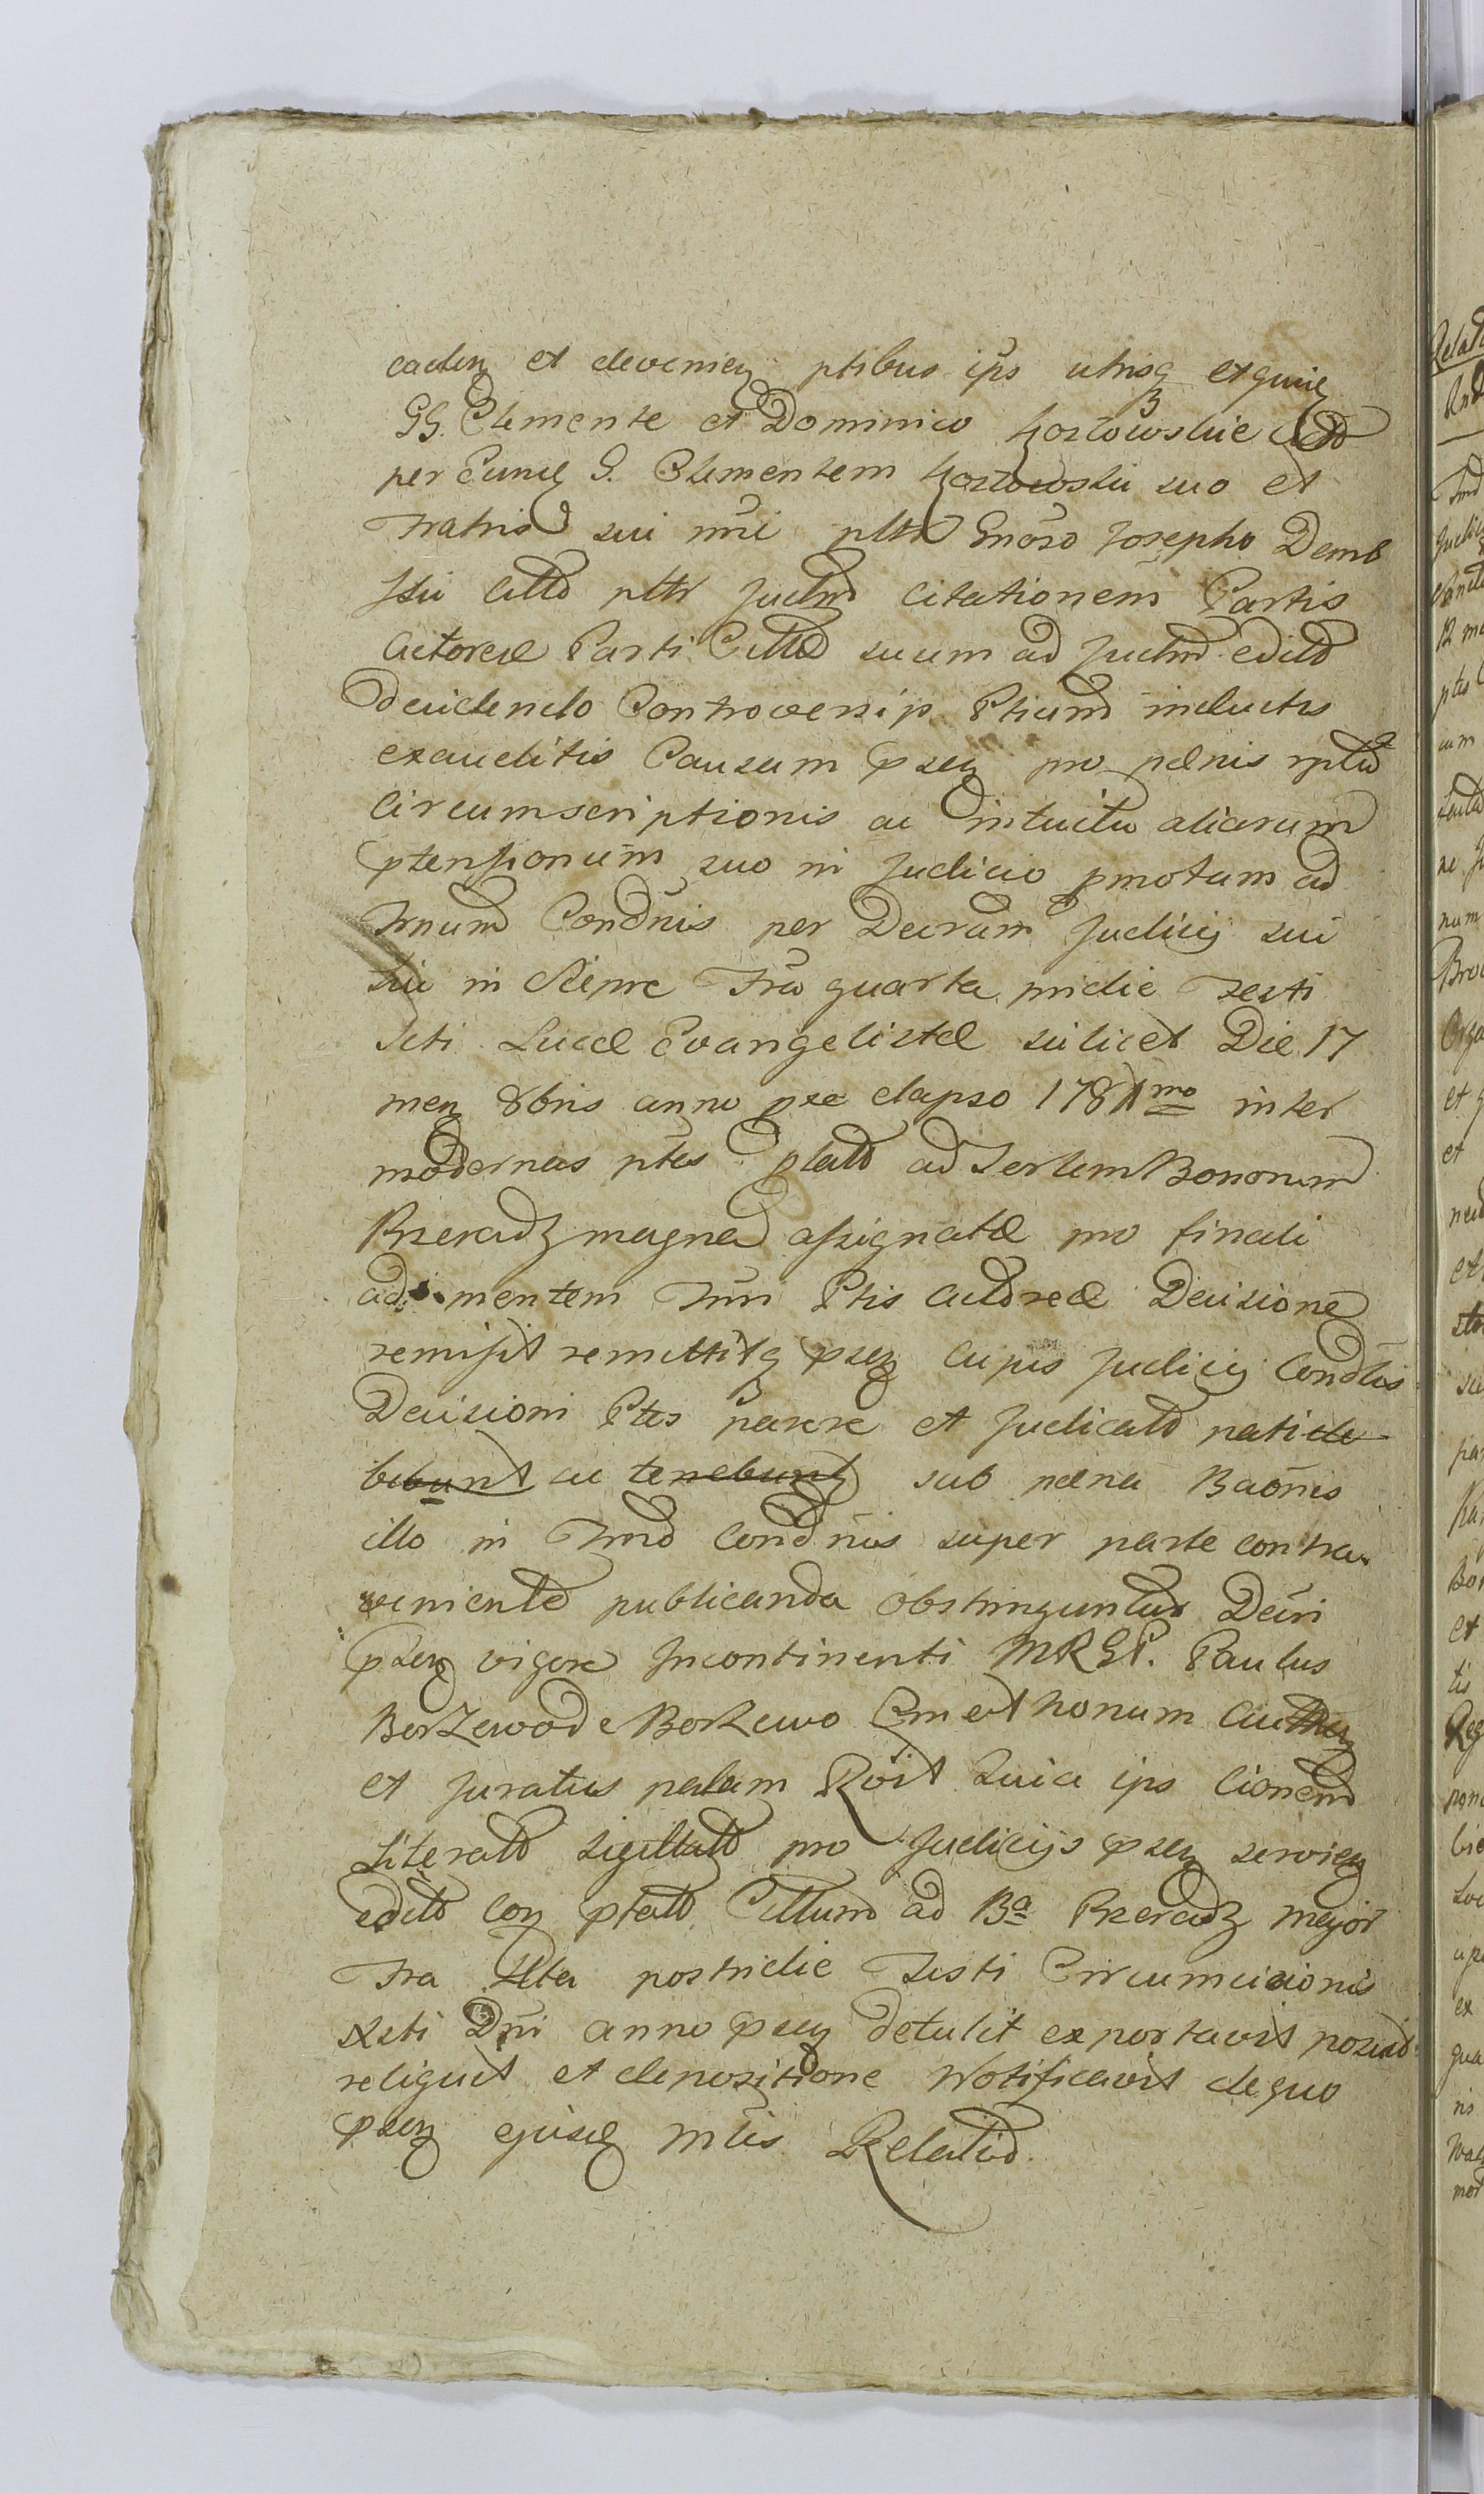 caden et devenien ptibus ips utrisq etquiẽ
GG. Clemente et Dominico Kozłowskie
per Eund G. Clementem Kozłowski suo et
Fratris sui nni pltr Gnoso Josepho Demb
ski Citto pltr Judm citationem Partis
Actoreæ Parti Cittæ suum ad Judm. editd
Decidendo Controversis Ptium inductis
exauditis Causam psen pro pænis rptæ
Circumscriptionis ac intuitu aliarum
ptensionum suo in Judicio pmotam ad
Trnum Condnis per Decram Judicij sui
hic in Fra quarta pridie Festi
Scti Lucæ Evangelistæ scilicet Die 17
men 8bris anno pre elapso 1781mo inter
modernas ptes plati ad Sortem Bonorum
Przeradz magna assignatæ pro finali
ad mentem Ptis Actoreæ Decisione
remisit remittitq psen cujus Judicij Condtis
Decisioni Ptes parere et Judicato pati de
bebunt ac tenebunt sub pæna Baonis
illo in Trno Condnis super parte contra
veniente publicanda obstringuntur Decri
psen vigore Incontinenti MRGP. Paulus
Borzewo de Borzewo Cmethonum
et Juratus palam Rdit Quia ips Cionem
Literatd sigillatd pro Judicijs psen servien
editd con ptatd Cittum ad Ba Przeradz major
Fra 4ta postridie Festi Circumcisionis
Xsti Dni anno psen detulit exportavit posuit
reliquit et depositione Notificavit de quo
psen ejusd mtis Relatio.